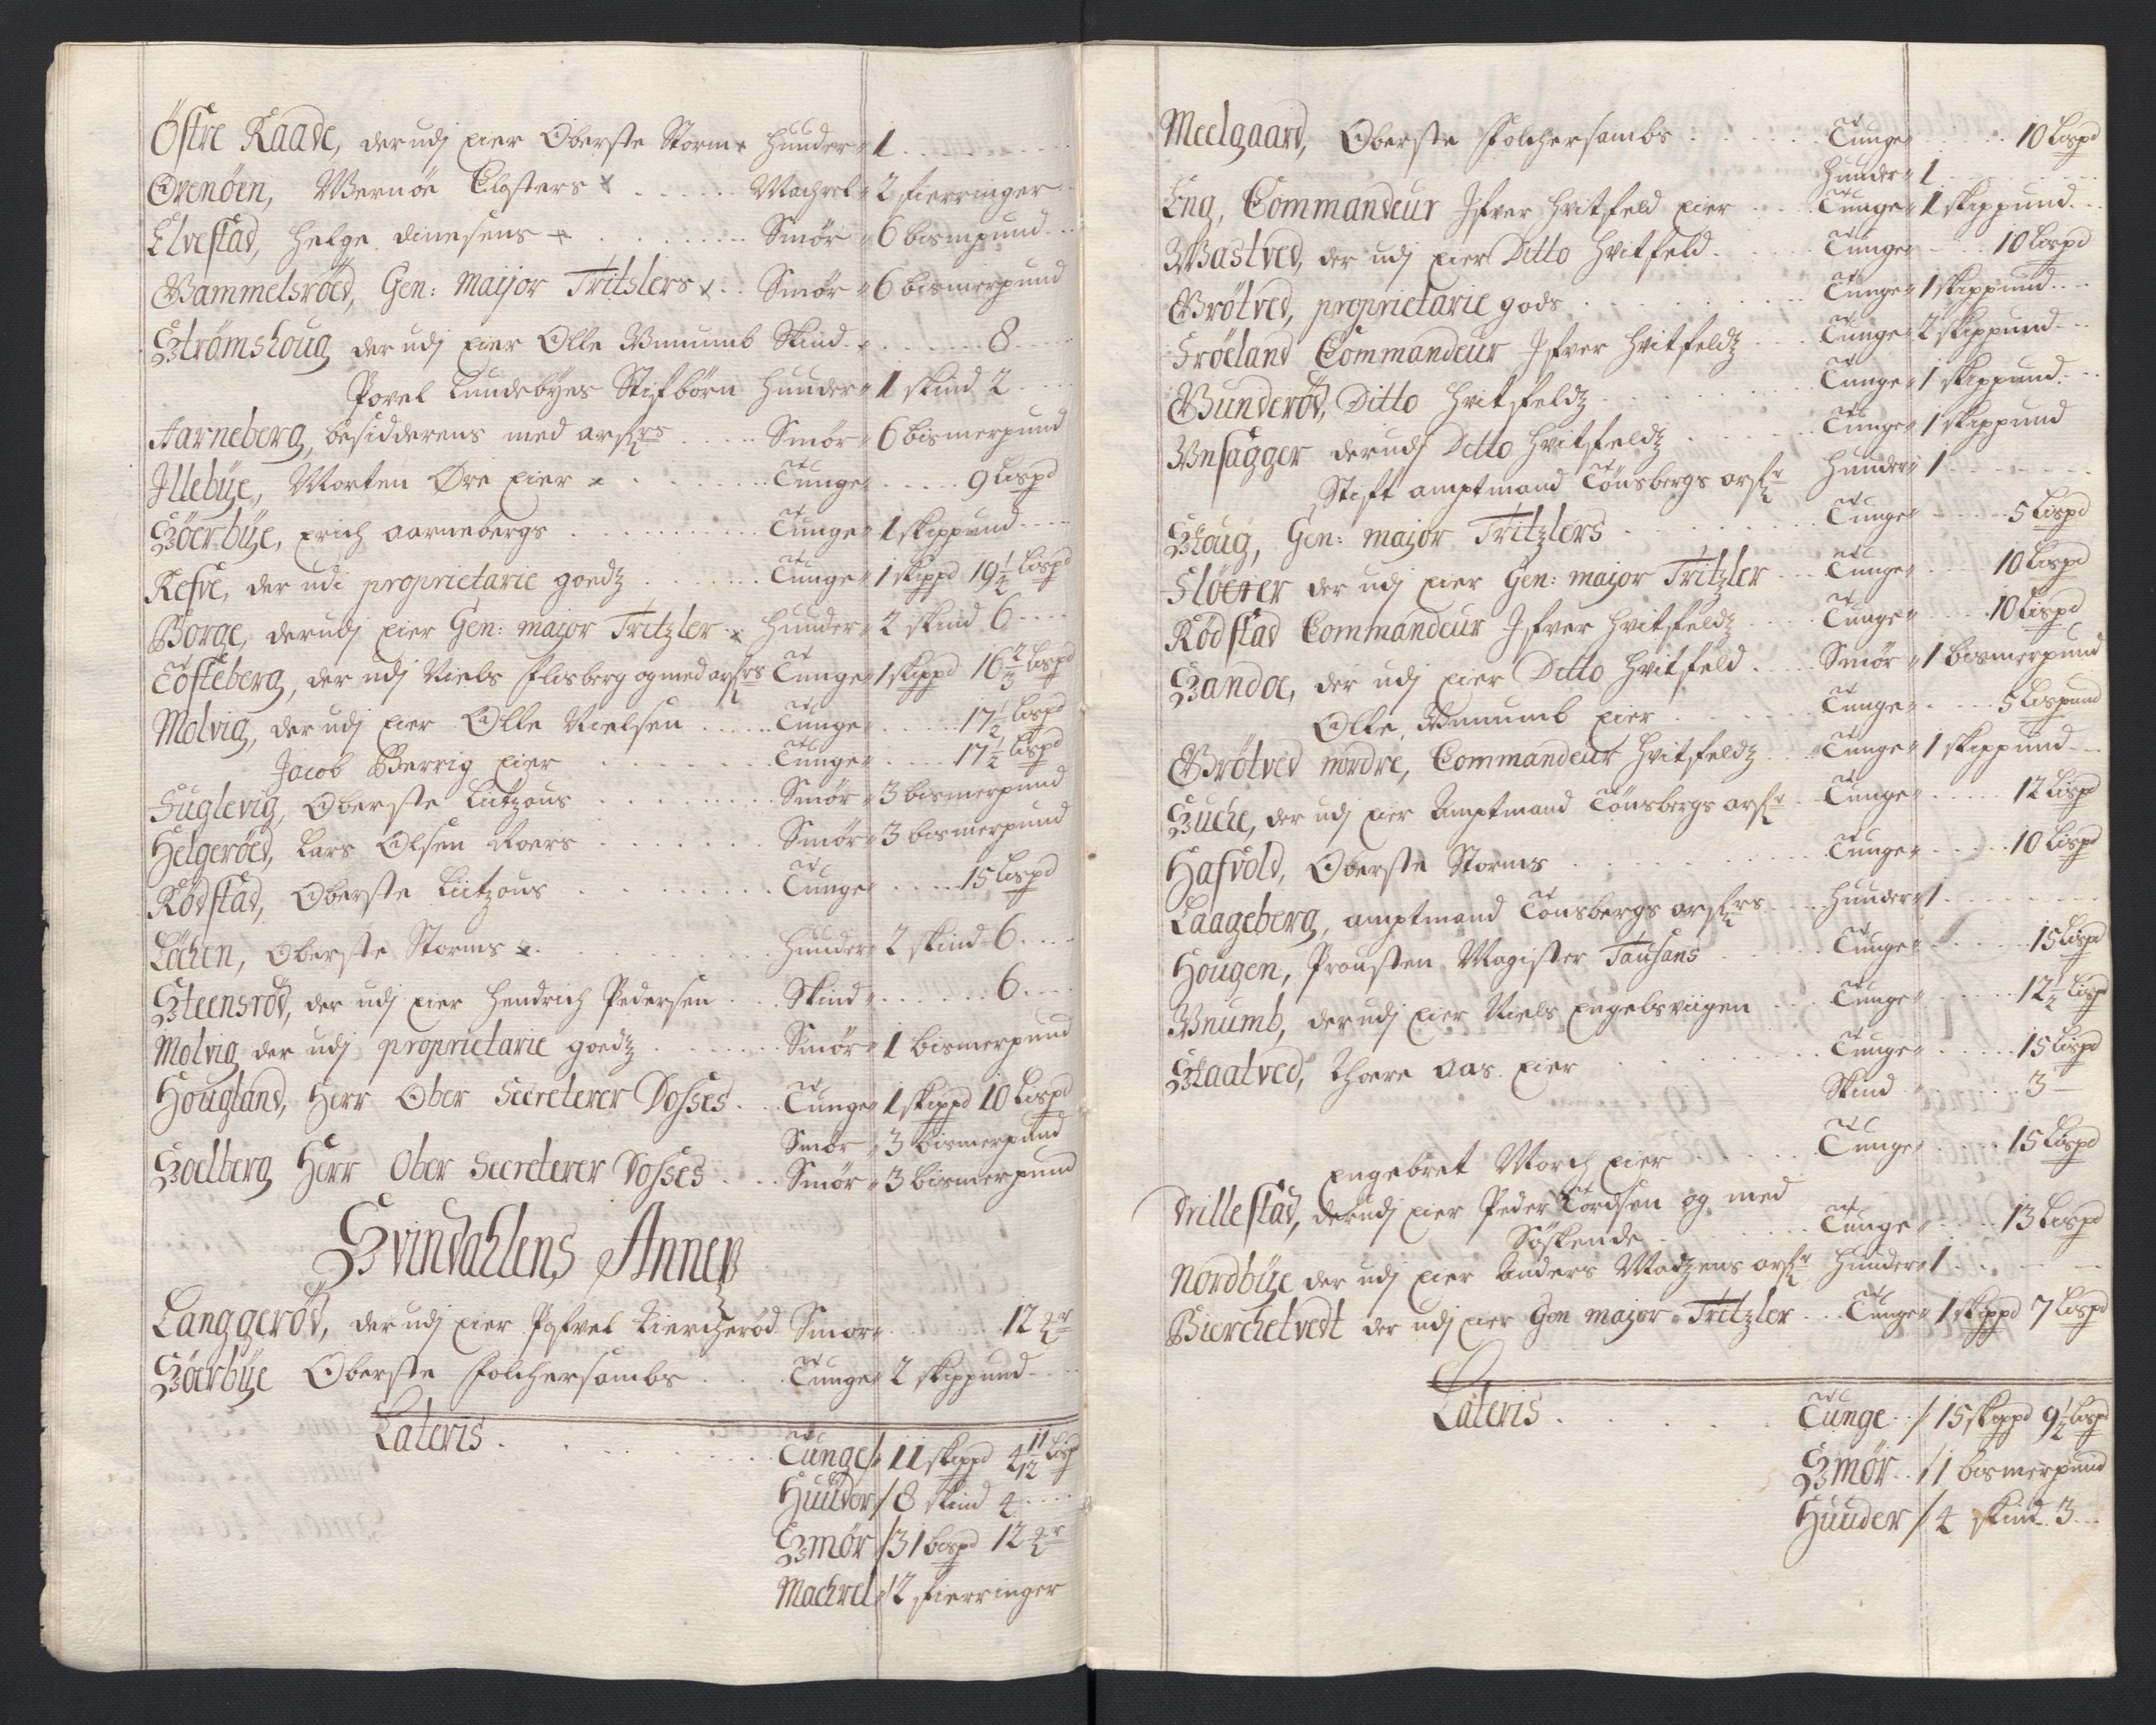 Östre Raade, der udj eier Oberste Storm × Huuder " 1
Ovenöen, Wernöe Closters × Machrel " 2 fierringer
Elvestad, Helge Dinesens × Smör " 6 bismpund
Gammelsröed, Gen: Maijor Tritslers × Smör " 6 bismerpund
Strömshoug der udj eier Olle Wnumb Skind 8
Povel Lundebÿes Stifbörn Huuder " 1 skind 2
Aarneberg, besidderens med arf:rs Smör " 6 bismerpund
Illebÿe, Morten Öre eier × Tunge " 9 Lispd
Söerbÿe, Erich Aarnebergs Tunge " 1 skippund
Refve, der udi proprietarie goedtz Tunge " 1 skippd 19 1/4 Lispd
Borge, derudj eier Gen: major Tritzler × Huuder " 2 skind 6
Tofteberg, der udj Niels Elisberg og med arf:rs Tunge " 1 skippd 16 2/3 Lispd
Molvig, der udj eier Olle Nielsen Tunge " 17 1/2 Lispd
Jacob Berrig eier Tunge " 17 1/2 Lispd
Fuglevig, Oberste Lützous Smör " 3 bismerpund
Helgeröed, Lars Olsen Roers Smör " 3 bismerpund
Rödstad, Oberste Lützous Tunge " 15 Lispd
Löchen, Oberste Storms × Huuder " 2 skind 6
Steensröd, der udj eier Hendrich Pedersen Skind " 6
Molvig der udj proprietarie goedtz Smör " 1 bismerpund
Hougland, Herr Ober Secreterer Dosses Tunge " 1 skippd 10 Lispd
Smör " 3 bismerpund
Soelberg Herr Ober Secreterer Dosses Smör " 3 bismerpund
Svindahlens Annex
Langgeröd, der udj eier Pofvel Kiercheröd Smör " 12 mr
Söerbÿe Oberste Folchersambs Tunge " 2 skippund
Lateris Tunge / 11 skippd 4 11/12 Lispd
Huuder / 8 skind 4
Smör / 31 bispd 12 mr
Machrel " 2 fierringer
Meelgaard, Oberste Folchersambs Tunge " 10 Lispd
Huuder " 1
Eng, Commandeur Ifver Hvitfeld eier Tunge " 1 skippund
Wastved, der udj eier Ditto Hvitfeld Tunge " 10 Lispd
Grötved, proprietarie gods Tunge " 1 skippund
Fröeland Commandeur Ifver Hvitfeldtz Tunge " 2 skippund
Gunderöd, Ditto Hvitfeldtz Tunge " 1 skippund
Wnsagger derudj Ditto Hvitfeldtz Tunge " 1 skippund
Stift amptmand Tönsbergs arf:r Huuder " 1
Skoug, Gen: major Tritzlers Tunge " 5 Lispd
Flöeter der udj eier Gen: major Tritzler Tunge " 10 Lispd
Rödstad Commandeur Ifver Hvitfeldtz Tunge " 10 Lispd
Sandae, der udj eier Ditto Hvitfeld Smör " 1 bismerpund
Olle Wnumb eier Tunge " 5 Lispund
Grötved nordre, Commandeur Hvitfeldtz Tunge " 1 skippund
Buche, der udj eier Amptmand Tönsbergs arf:r Tunge " 12 Lispd
Hafvold, Oberste Storms Tunge " 10 Lispd
Laageberg, amptmand Tönsbergs arf:rs Huuder " 1
Hougen, Prousten Magister Tausans Tunge " 15 Lispd
Wnumb, derudj eier Niels Engebsviigen Tunge " 12 1/2 Lispd
Skaatved, Thoere Aas eier Tunge " 15 Lispd
Skind " 3
Engebret Morch eier Tunge " 15 Lispd
Drillestad, derudj eier Peder Tordsen og med
Söskende Tunge " 13 Lispd
Nordbÿe der udj eier Anders Madzens arf:r Huuder " 1
Bierchetvedt der udj eier Gen major Tritzler Tunge " 1 skippd 7 Lispd
Lateris Tunge / 15 skippd 9 1/2 Lispd
Smör / 1 bismerpund
Huuder / 4 skind 3